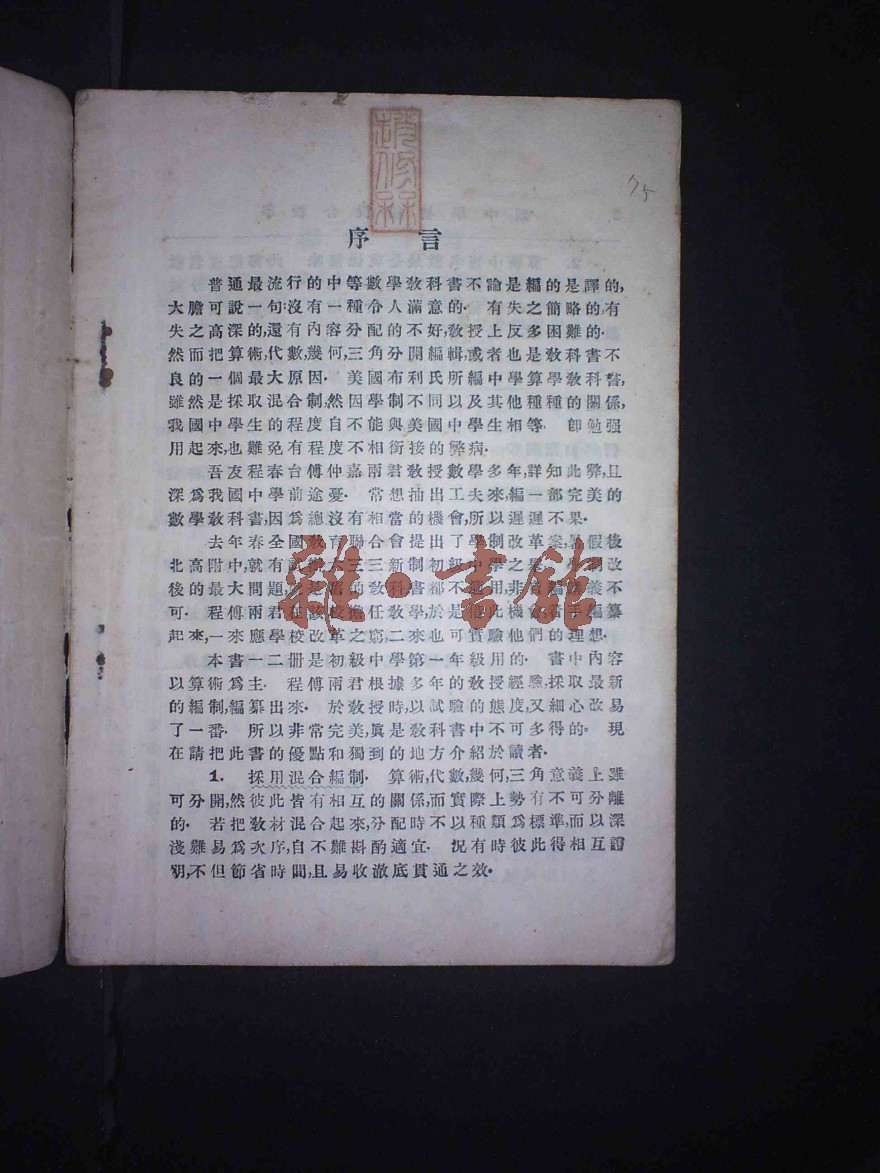 75
序言
普通最流行的中等數學教科書不論是編的是譯的,
大膽可說一句:沒有一種令人滿意的. 有失之簡略的,有
失之高深的,還有內容分配的不好,教授上反多困難的.
然而把算術,代數,幾何,三角分開編輯,或者也是教科書不
良的一個最大原因. 美國布利氏所編中學算學教科書,
雖然是採取混合制,然因學制不同以及其他種種的關係,
我國中學生的程度自不能與美國中學生相等. 卽勉强
用起來,也難免有程度不相銜接的弊病.
吾友程春台傅仲嘉兩君教授數學多年,詳知此弊,且
深爲我國中學前途憂. 常想抽出工夫來,編一部完美的
數學教科書,因爲總沒有相當的機會,所以遲遲不果.
去年春全國教育聯合會提出了學制改革案,暑假後
北高附中,就有試辦六三三新制初級中學之舉. 學制改
後的最大問題,就是舊的教科書都不適用,非 義不
可. 程傅兩君在該校擔任教學,於是 此機會,着手編纂
起來,一來應學校改革之窮,二來也可實驗他們的理想.
本書一二册是初級中學第一年級用的. 書中內容
以算術爲主. 程傅兩君根據多年的教授經驗,採取最新
的編制,編纂出來. 於教授時,以試驗的態度,又細心改易
了一番. 所以非常完美,眞是教科書中不可多得的. 現
在請把此書的優點和獨到的地方介紹於讀者.
1. 採用混合編制. 算術,代數,幾何,三角意義上雖
可分開,然彼此皆有相互的關係,而實際上勢有不可分離
的. 若把教材混合起來,分配時不以種類爲標準,而以深
淺難易爲次序,自不難斟酌適宜. 況有時彼此得相互證
明,不但節省時間,且易收澈底貫通之效.
雜·書館